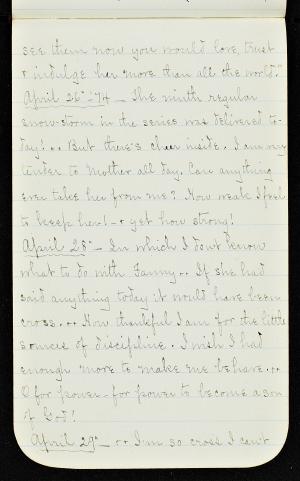 see them now you would love, trust
& indulge her more than all the world."
April 26" - '74 - The ninth regular
snow-storm in the series was delivered to-
day! .. But there's cheer inside. I am my
tender to Mother all day. Can anything
ever take her from me? How weak I feel
to keep her! - & yet how strong!
April 28" - In which I don't know
what to do with Fanny .. If she had
said anything today it would have been
cross. .. How thankful I am for the little
sources of discipline. I wish I had
enough more to make me behave. ..
O for power - for power to become a son
of God!
April 29" - .. I am so cross I can't